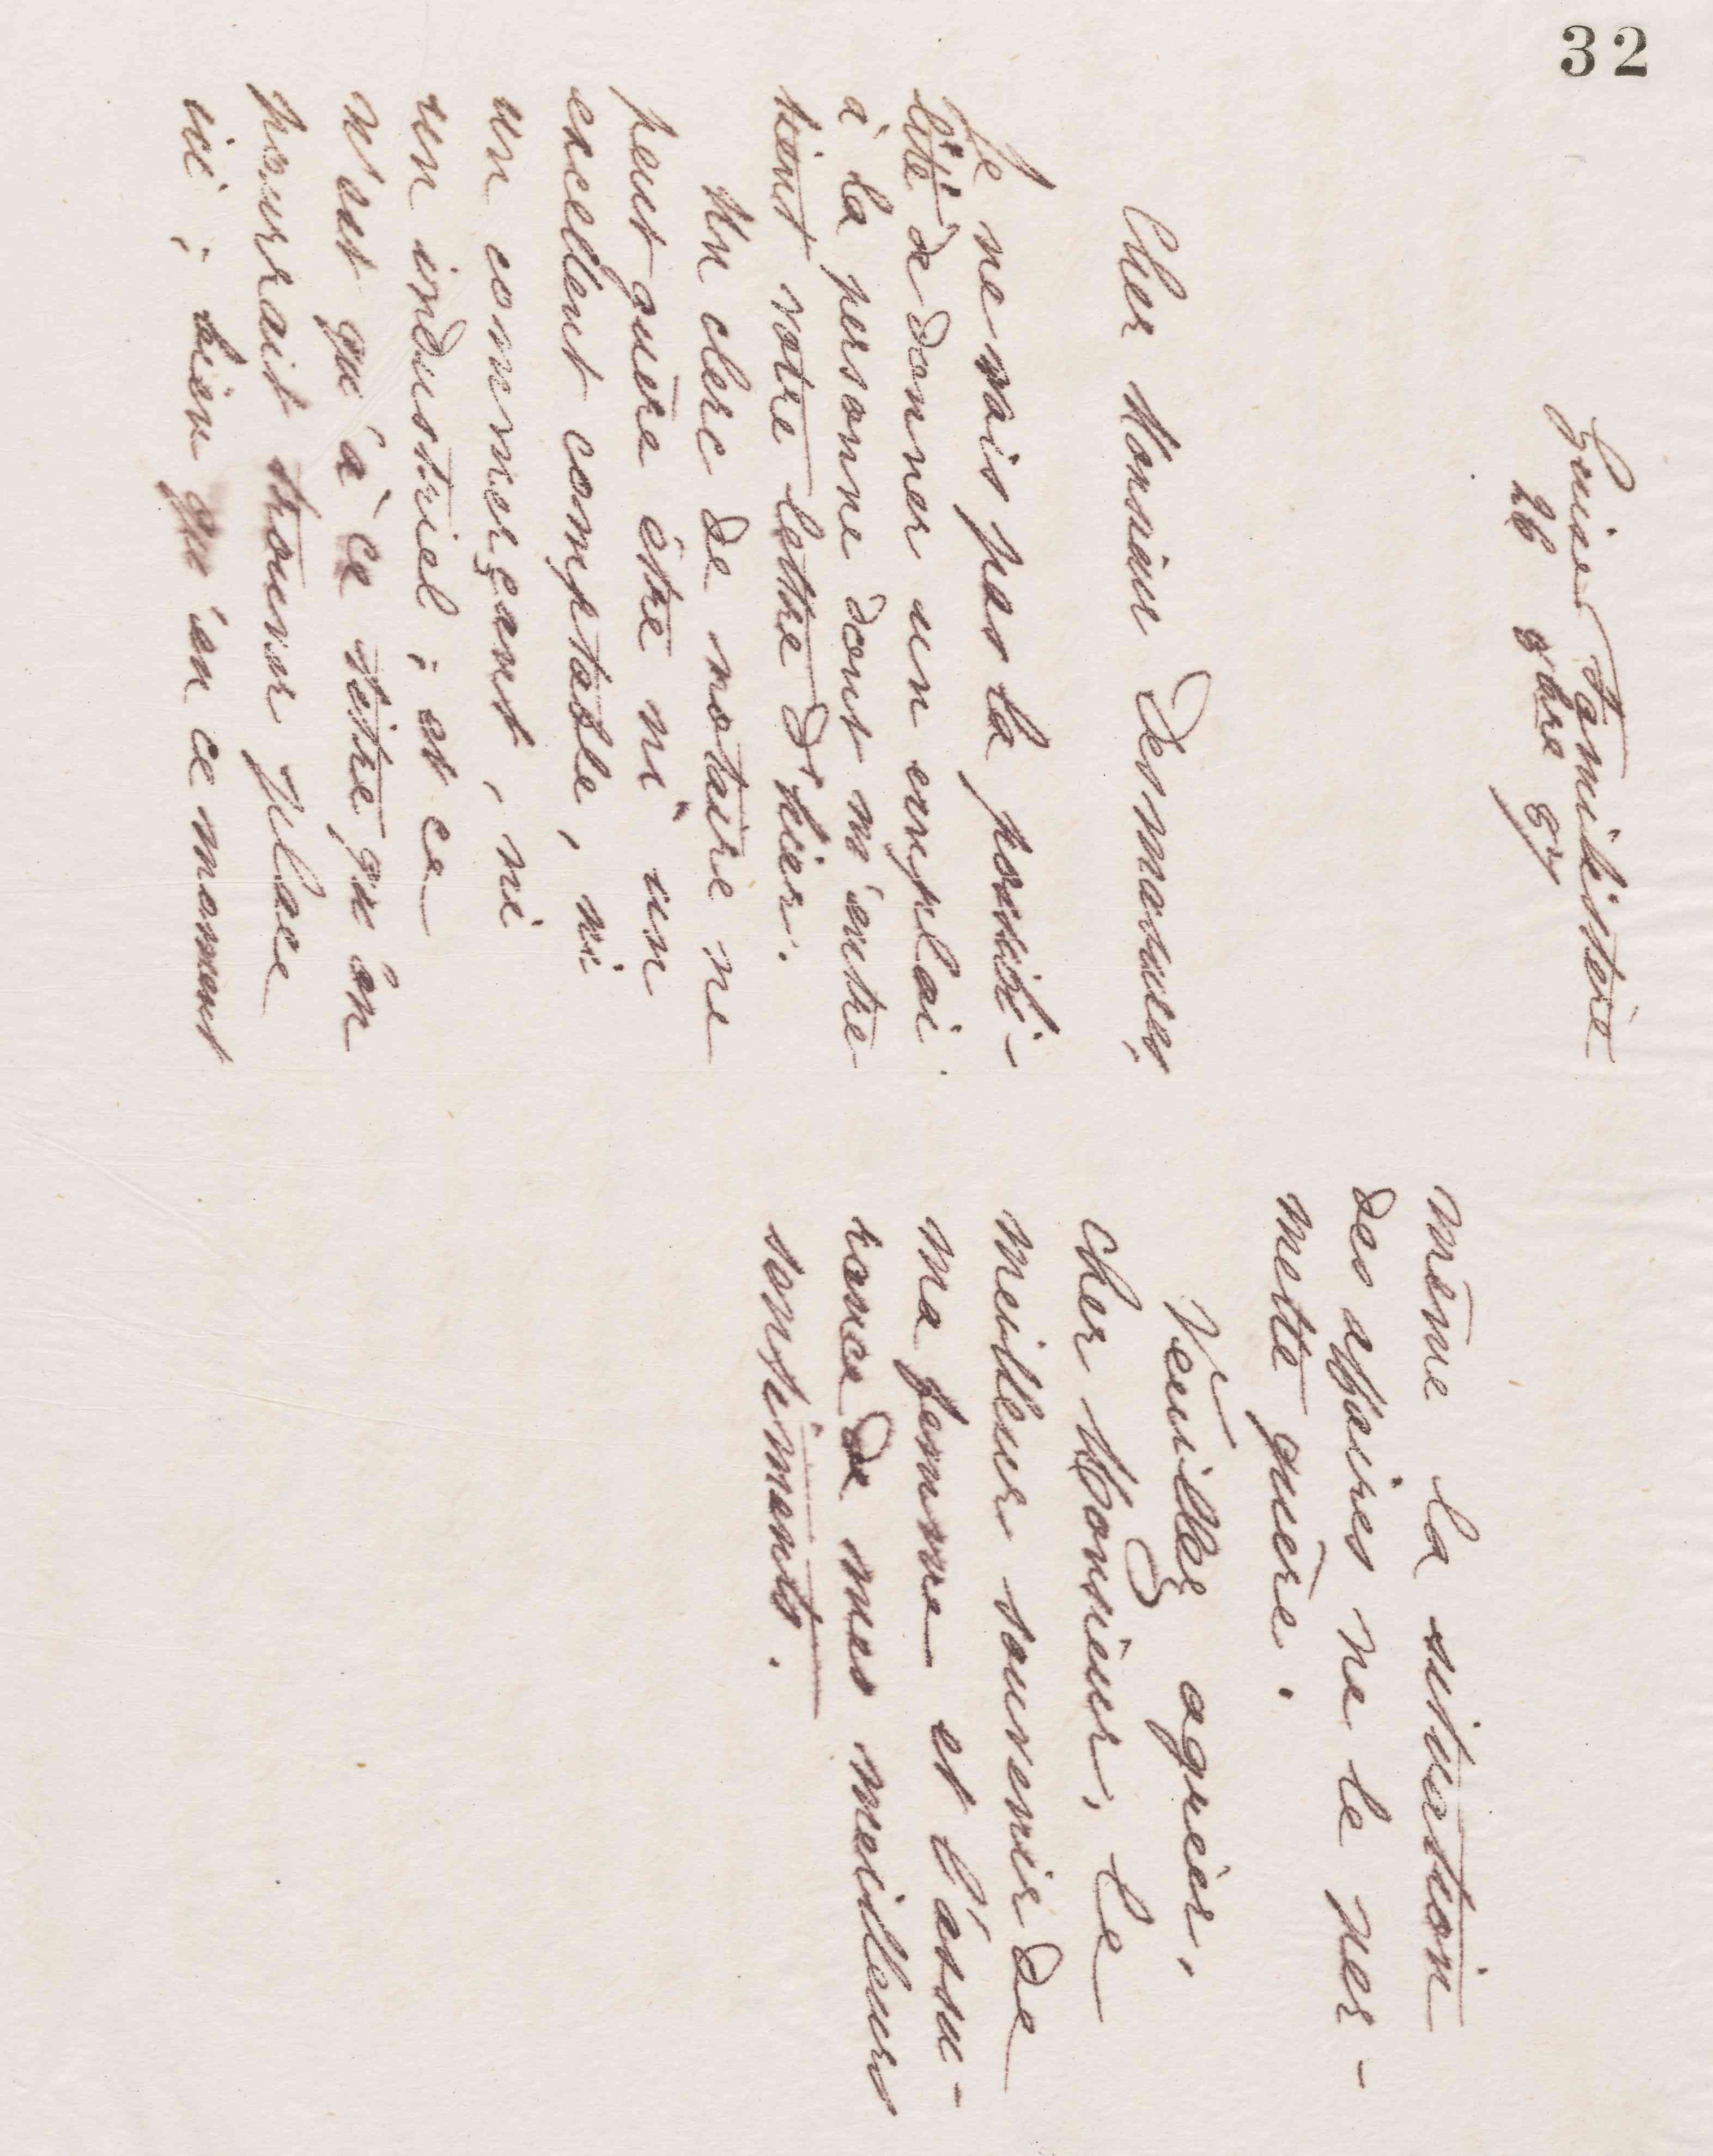 32
Guise Familistère
26 9bre 97
Cher Monsieur Desmasures,
Je ne vois pas la possibi-
lité de donner un emploi
à la personne dont m'entre
tient votre lettre d'hier.
Un clerc de notaire ne
peut guère être ni un
excellent comptable, ni
un commerçant, ni
un industriel ; et ce
n'est qu'à ce titre qu'on
pourrait trouver place
ici ; bien qu'en ce moment
même la situation
des affaires ne le per-
mette guère.
Veuillez agréer,
cher Monsieur, le
meilleur souvenir de
ma femme et l'assu-
rance de mes meilleurs
sentiments.